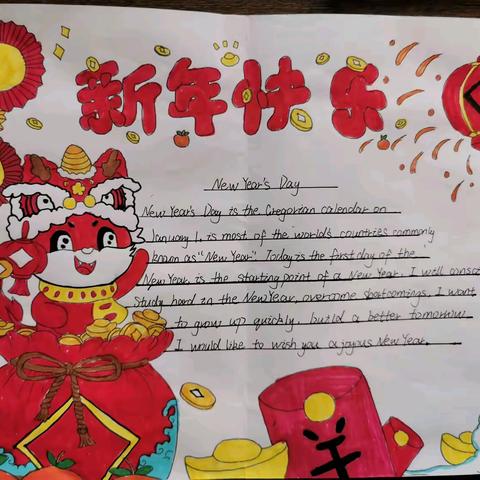 新年快乐
New Year's Day
New Year's Day is the Gregorian calendar on
January 1, is most of the world's countries commonly
known as "New Year". Today is the first day of the
New Year, is the starting point of a New Year. I will
study hard in the New Year, overcome shortcomings, I want
to grow up quickly, build a better tomorrow
I would like to wish you a joyous New Year.